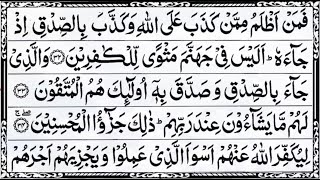 فَمَنْ اَظْلَمُ مِمَّنْ كَذَبَ عَلَى اللّٰهِ وَكَذَّبَ بِالصِّدْقِ اِذْ
جَآءَهٗ ؕ اَلَيْسَ فِىْ جَهَنَّمَ مَثْوًى لِّلْكٰفِرِيْنَ ﴿۳۲﴾ وَالَّذِىْ
جَآءَ بِالصِّدْقِ وَ صَدَّقَ بِهٖۤ اُولٰٓئِكَ هُمُ الْمُتَّقُوْنَ ﴿۳۳﴾
لَهُمْ مَّا يَشَآءُوْنَ عِنْدَ رَبِّهِمْ ؕ ذٰلِكَ جَزٰٓؤُا الْمُحْسِنِيْنَ ﴿۳۴﴾
لِيُكَفِّرَ اللّٰهُ عَنْهُمْ اَسْوَاَ الَّذِىْ عَمِلُوْا وَيَجْزِيَهُمْ اَجْرَهُمْ